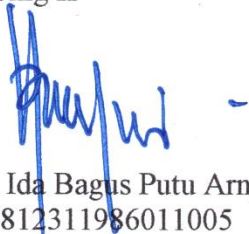 Ida Bagus Putu Arn
812311986011005